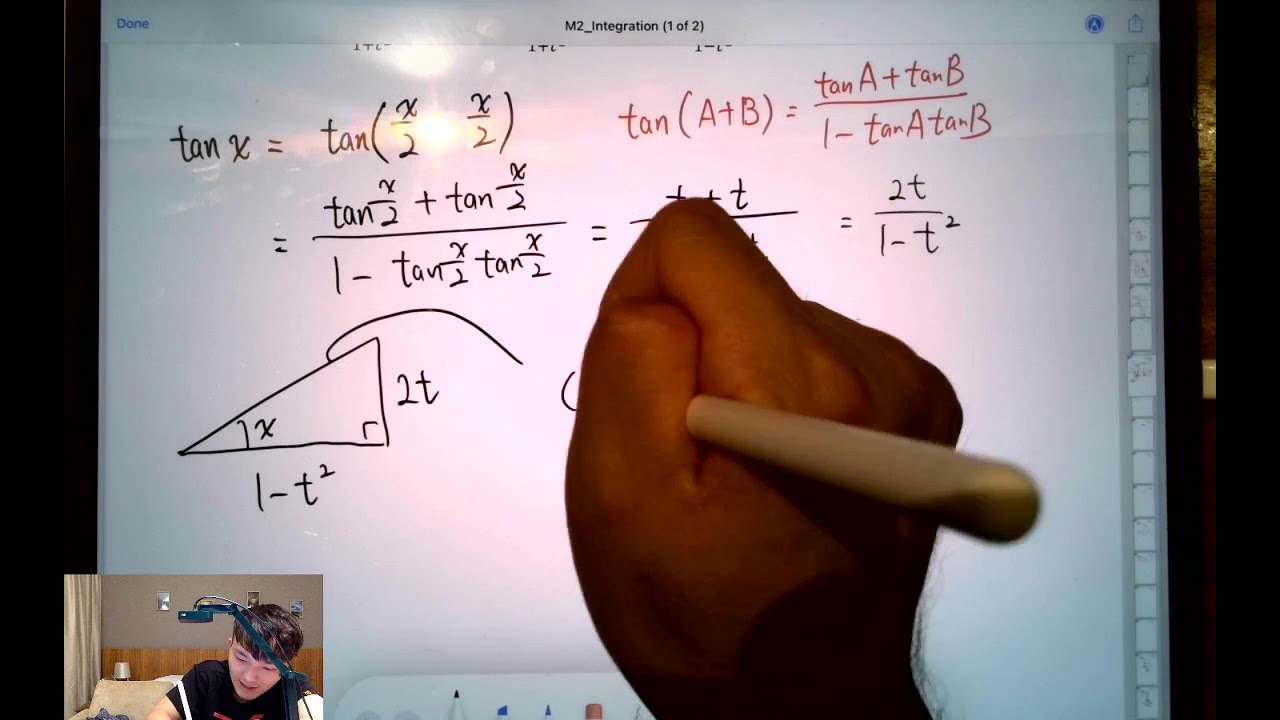 Done
M2_Integration (1 of 2)
tan x = tan(x/2 x/2)
tan(A+B) = (tanA + tanB)/(1 - tanA tanB)
= (tan x/2 + tan x/2)/(1 - tan x/2 tan x/2) = t + t = 2t/(1 - t²)
x
2t
1 - t²
(